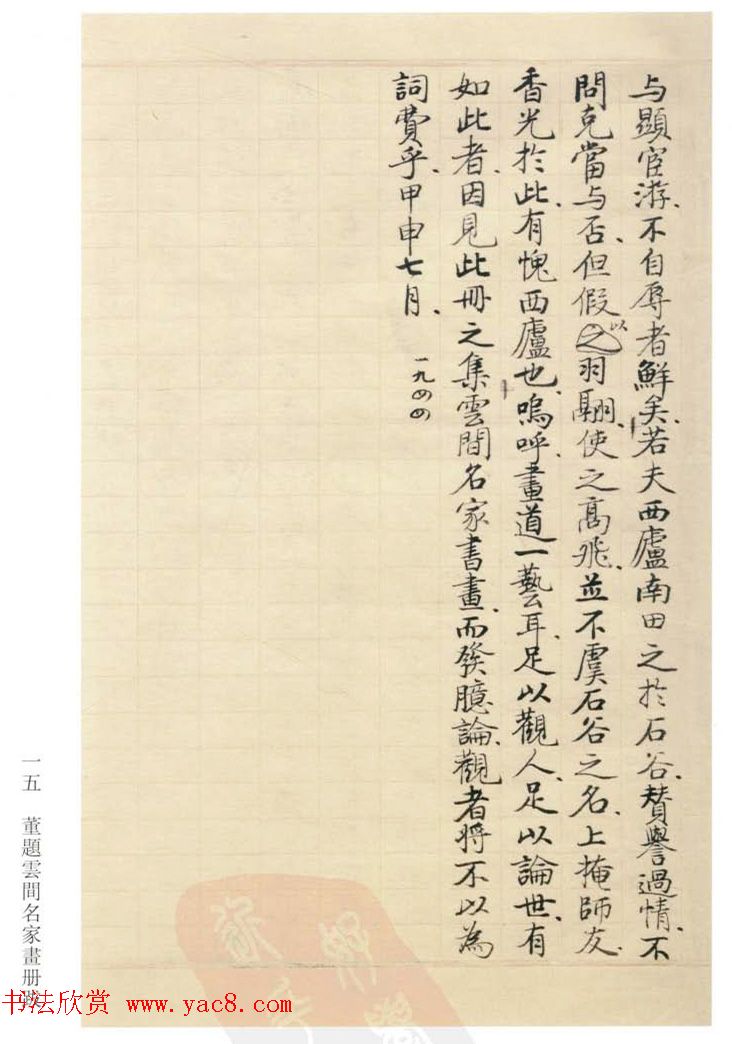 与顯宦游、不自辱者鮮矣、若夫西廬南田之於石谷、賛譽過情、不
問克當与否、但假之以羽翮、使之高飛、並不虞石谷之名、上掩師友、
香光於此、有愧西廬也、嗚呼、畫道一藝耳、足以觀人、足以論世、有
如此者、因見此冊之集雲間名家書畫、而發臆論、觀者將不以為
詞費乎、甲申七月、
一九四四
一五 董題雲間名家畫册跋
书法欣赏 www.yac8.com